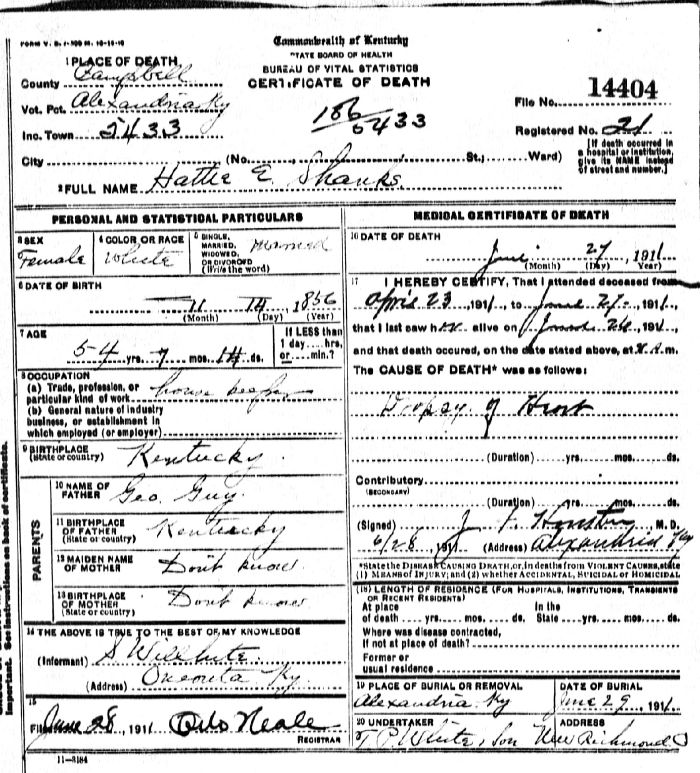 FORM V. S. 1-
Commonwealth of Kentucky
STATE BOARD OF HEALTH
BUREAU OF VITAL STATISTICS
CERTIFICATE OF DEATH
1 PLACE OF DEATH,
County Campbell
Vot. Pct. Alexandria Ky
Inc. Town 5433
186
5433
File No. 14404
Registered No. 21
City (No. , St.; Ward)
[If death occurred in a hospital or institution, give its NAME instead of street and number.]
2 FULL NAME Hattie E. Shanks
PERSONAL AND STATISTICAL PARTICULARS
3 SEX Female
4 COLOR OR RACE White
5 SINGLE, MARRIED, WIDOWED, OR DIVORCED (Write the word) Married
6 DATE OF BIRTH
11 14 1856
(Month) (Day) (Year)
7 AGE
54 yrs. 7 mos. 14 ds.
If LESS than 1 day.... hrs, or.... min.?
8 OCCUPATION
(a) Trade, profession, or particular kind of work house keeper
(b) General nature of industry business, or establishment in which employed (or employer)
9 BIRTHPLACE
(State or country) Kentucky
PARENTS
10 NAME OF FATHER Geo. Guy
11 BIRTHPLACE OF FATHER (State or country) Kentucky
12 MAIDEN NAME OF MOTHER Don't know
13 BIRTHPLACE OF MOTHER (State or country) Don't know
14 THE ABOVE IS TRUE TO THE BEST OF MY KNOWLEDGE
(Informant) S Willhite
(Address) Ky.
15
Filed June 28, 1911 Neale
REGISTRAR
11-3184
MEDICAL CERTIFICATE OF DEATH
16 DATE OF DEATH
June 27, 1911
(Month) (Day) (Year)
17 I HEREBY CERTIFY, That I attended deceased from
April 23, 1911, to June 27, 1911
that I last saw her alive on June 26, 1911
and that death occured, on the date stated above, at A. m.
The CAUSE OF DEATH* was as follows:
Dropsy of Heart
(Duration) yrs. mos. ds.
Contributory
(SECONDARY)
(Duration) yrs. mos. ds.
(Signed) J. F. M. D.
6/28, 1911 (Address) Alexandria Ky
*State the DISEASE CAUSING DEATH, or, in deaths from VIOLENT CAUSES, state
(1) MEANS OF INJURY; and (2) whether ACCIDENTAL, SUICIDAL or HOMICIDAL
(18) LENGTH OF RESIDENCE (FOR HOSPITALS, INSTITUTIONS, TRANSIENTS OR RECENT RESIDENTS)
At place of death.... yrs. mos. ds.
In the State.... yrs. mos. ds.
Where was disease contracted,
If not at place of death?
Former or
usual residence
19 PLACE OF BURIAL OR REMOVAL
Alexandria Ky
DATE OF BURIAL
June 29, 1911
20 UNDERTAKER
T P White, Son
ADDRESS
New Richmond O
Important. See instructions on back of certificate.